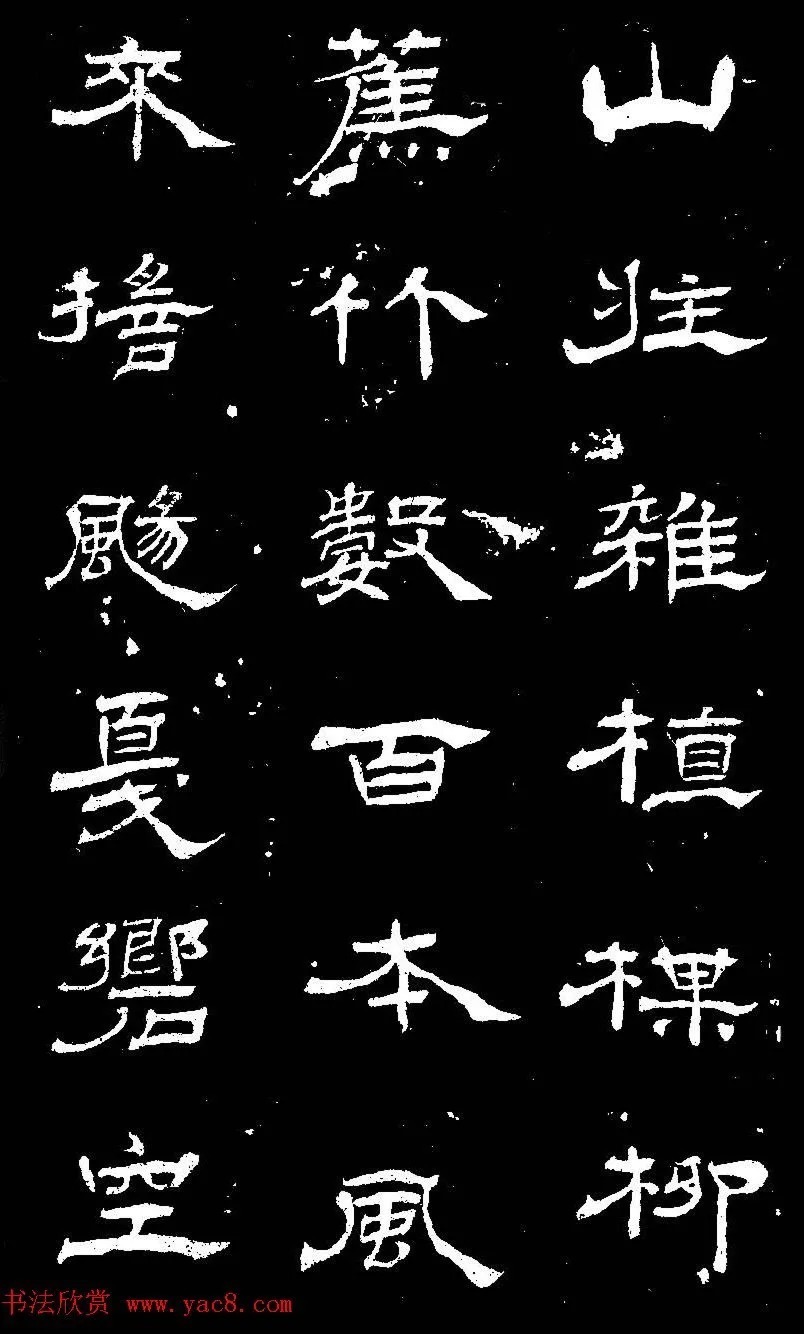 山壯雜植棵柳
蕉竹數百本風
來搖颺戛響空
书法欣赏 www.yac8.com